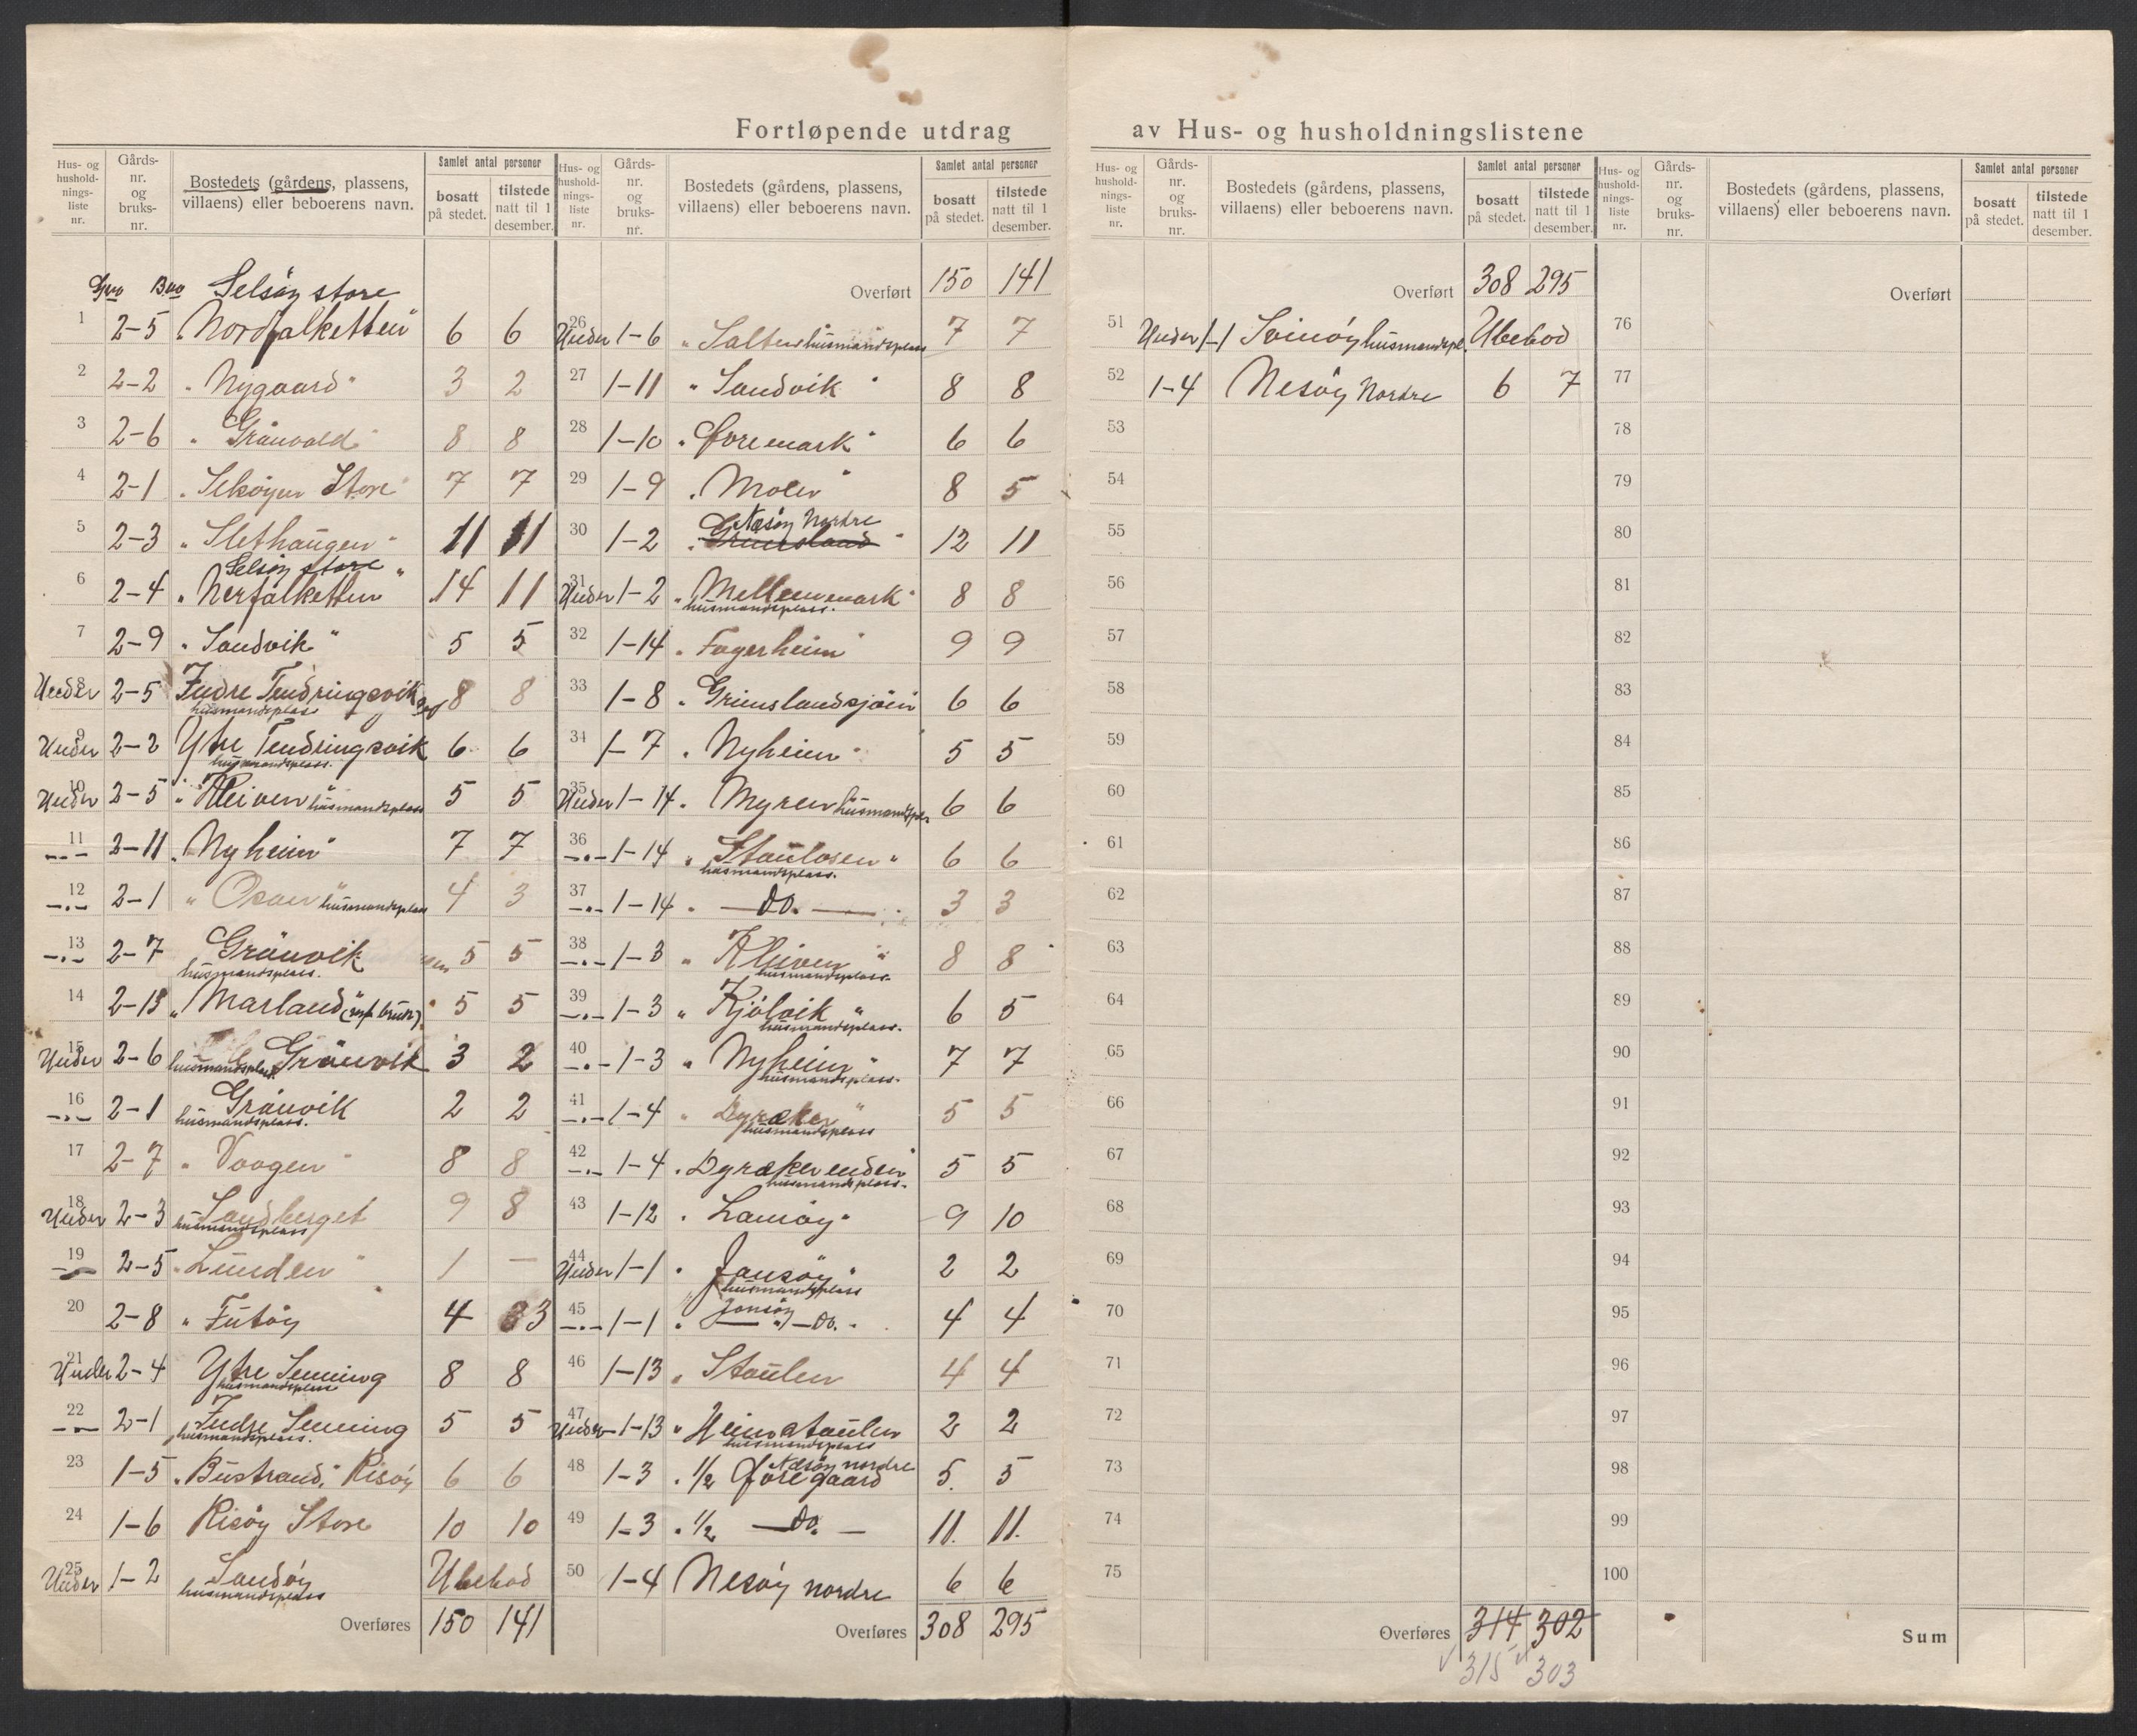 Fortløpende utdrag av Hus- og husholdningslistene
Hus- og husholdnings-liste nr. | Gårds-nr. og bruks-nr. | Bostedets (gårdens, plassens, villaens) eller beboerens navn. | Samlet antal personer bosatt på stedet. | tilstede natt til 1 desember.
Gno Bno Selsöy store
1 2-5 "Nordfalketten" 6 6
2 2-2 "Nygaard" 3 2
3 2-6 "Grånvold" 8 8
4 2-1 "Selsöyen Store" 7 7
5 2-3 "Slethaugen" 11 11
Selsöy store
6 2-4 "Nerfalketten" 14 11
7 2-9 "Sandvik" 5 5
8 Under 2-5 Indre Tendringsvik husmandsplass 8 8
9 Under 2-2 Ytre Tendringsvik husmandsplass. 6 6
10 Under 2-5 "Kleiven husmandsplass 5 5
11 -"- 2-11 "Nyheim" 7 7
12 -"- 2-1 "Osan husmandsplass 4 3
13 -"- 2-7 Grånvik husmandsplass. 5 5
14 2-13 "Marland 5 5
15 Under 2-6 husmandsplass Grånvik 3 2
16 -"- 2-1 Grånvik husmandsplass. 2 2
17 2-7 "Vaagen" 8 8
18 Under 2-3 Sandberget husmandsplass 9 8
19 -"- 2-5 "Lunden" 1 —
20 2-8 "Futöy 4 3
21 Under 2-4 Ytre Senning husmandsplass 8 8
22 -"- 2-1 Indre Senning husmandsplass. 5 5
23 1-5 "Bustrand" Risöy 6 6
24 1-6 Risöy Store 10 10
25 Under 1-2 Sandöy husmandsplass Ubebod
Overføres 150 141
Hus- og husholdnings-liste nr. | Gårds-nr. og bruks-nr. | Bostedets (gårdens, plassens, villaens) eller beboerens navn. | Samlet antal personer bosatt på stedet. | tilstede natt til 1 desember.
Overført 150 141
26 Under 1-6 "Salten husmandsplass 7 7
27 1-11 "Sandvik" 8 8
28 1-10 "Foremark" 6 6
29 1-9 "Molen" 8 5
Nesöy Nordre
30 1-2 "Grimsland" 12 11
31 Under 1-2 "Mellemmark" husmandsplass. 8 8
32 1-14 "Fagerheim" 9 9
33 1-8 "Grimslandsjöen 6 6
34 1-7 "Nyheim" 5 5
35 Under 1-14 "Myren husmandspl. 6 6
36 -"- 1-14 "Staulosen" husmandsplass. 6 6
37 -"- 1-14 " — Do. — 3 3
38 -"- 1-3 "Kleiven" husmandsplass. 8 8
39 -"- 1-3 "Kjölvik" husmandsplass. 6 5
40 -"- 1-3 "Nyheim" husmandsplass. 7 7
41 -"- 1-4 "Dyraker" husmandsplass 5 5
42 -"- 1-4 "Dyrakerenden" husmandsplass. 5 5
43 1-12 "Lamöy" 9 10
44 Under 1-1 "Jansöy" husmandsplass 2 2
45 -"- 1-1 " Jonsöy — " — Do. 4 4
46 1-13 "Staulen 4 4
47 Under 1-13 "Heimstaulen husmandsplass 2 2
Nesöy nordre
48 1-3 "1/2 Foregaard 5 5
49 1-3 "1/2 — Do. — 11. 11.
50 1-4 Nesöy nordre 6 6
Overføres 308 295
Hus- og husholdnings-liste nr. | Gårds-nr. og bruks-nr. | Bostedets (gårdens, plassens, villaens) eller beboerens navn. | Samlet antal personer bosatt på stedet. | tilstede natt til 1 desember.
Overført 308 295
51 Under 1-1 Svinöy husmandspl. Ubebod
52 1-4 Nesöy Nordre 6 7
53
54
55
56
57
58
59
60
61
62
63
64
65
66
67
68
69
70
71
72
73
74
75
Overføres 314 302
315 303
Hus- og husholdnings-liste nr. | Gårds-nr. og bruks-nr. | Bostedets (gårdens, plassens, villaens) eller beboerens navn. | Samlet antal personer bosatt på stedet. | tilstede natt til 1 desember.
Overført
76
77
78
79
80
81
82
83
84
85
86
87
88
89
90
91
92
93
94
95
96
97
98
99
100
Sum